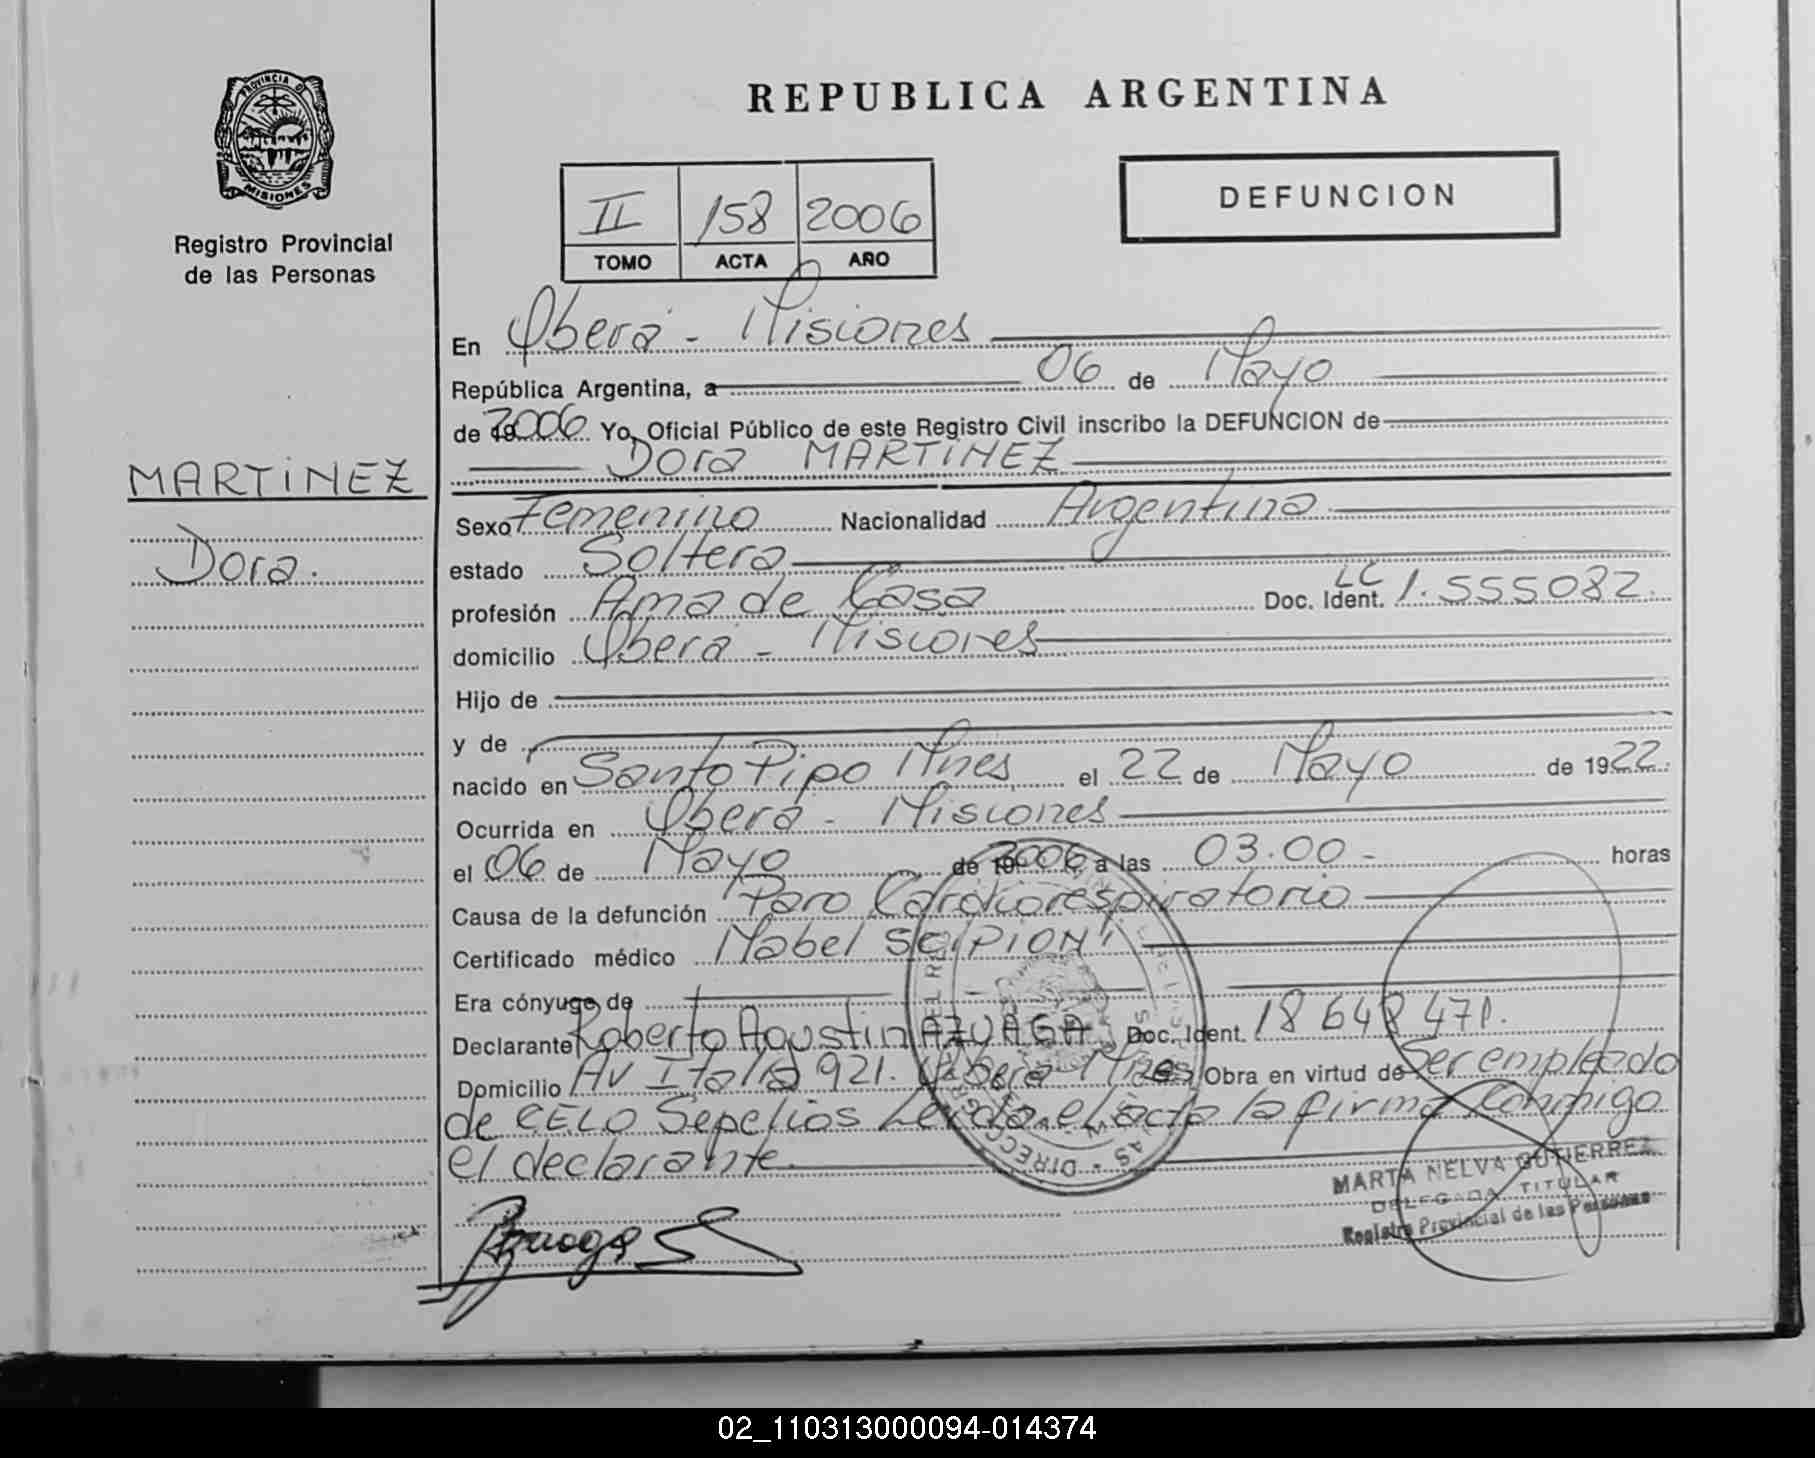 PROVINCIA DE
MISIONES
Registro Provincial
de las Personas
MARTINEZ
Dora.
REPUBLICA ARGENTINA
II 158 2006
TOMO ACTA AÑO
DEFUNCION
En Oberá - Misiones
República Argentina, a 06 de Mayo
de 2006 Yo, Oficial Público de este Registro Civil inscribo la DEFUNCION de
Dora MARTINEZ
Sexo Femenino Nacionalidad Argentina
estado Soltera
profesión Ama de Casa Doc. Ident. LC 1.555082.
domicilio Oberá - Misiones
Hijo de
y de
nacido en Santo Pipo Mnes el 22 de Mayo de 1922.
Ocurrida en Oberá - Misiones
el 06 de Mayo de 2006 a las 03.00 - horas
Causa de la defunción Paro Cardiorespiratorio
Certificado médico Mabel SCIPIONI
Era cónyuge de
Declarante Roberto Agustin AZUAGA Doc. Ident. 18 648 471.
Domicilio Av Italia 921. Oberá Mnes Obra en virtud de Ser empleado
de CELO Sepelios Leída el acta la firma Conmigo
el declarante.
Azuaga
MARTA NELVA GUTIERREZ
DELEGADA TITULAR
Registro Provincial de las Personas
02_110313000094-014374